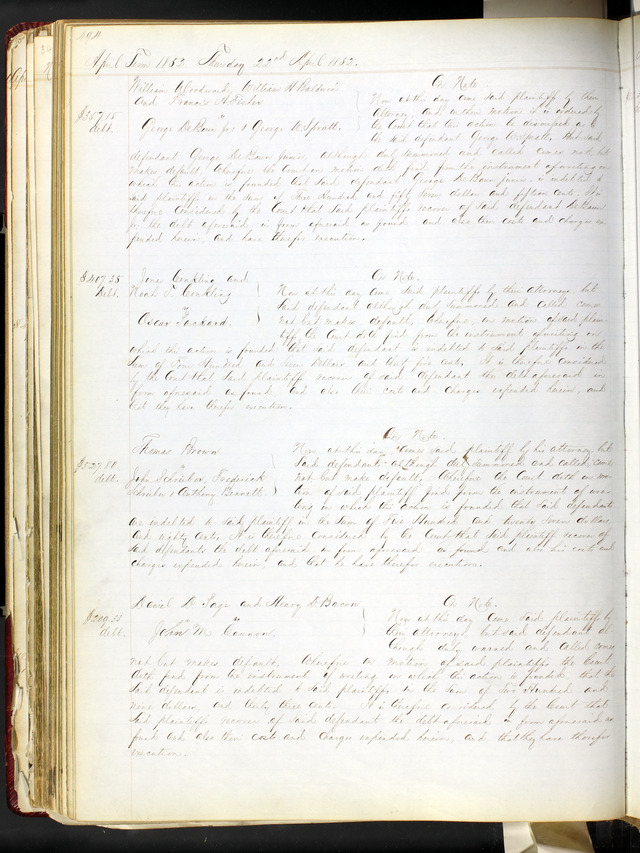 194
April Term 1852 Thursday 22nd April 1852.
William Woodward, William H Baldwin
and Francis H Fisher
vs
George DeBaun Jr. & George W Spratt.
$515.15
debt.
On Note.
Now at this day come said plaintiffs by their
attorney and on their motion it is ordered by
the Court that this action be dismissed as to
the said defendant George W Spratt, And said
defendant George DeBaun Junior, although duly summoned and called comes not, but
makes default, Wherefore the Court on motion doth find from the instrument of writing on
which the action is founded that said defendant George DeBaun junior is indebted to
said plaintiffs in the sum of Five Hundred and fifteen dollars and fifteen cents, It is
therefore considered by the Court that said plaintiffs recover of said defendant DeBaun
Jr. the debt aforesaid in form aforesaid as found and also their costs and charges ex-
pended herein, and have therefor execution.
$407.35
debt.
Jonas Conkling and
Noah T Conkling
vs
Oscar Packard.
On Note.
Now at this day come said plaintiffs by their attorney, but
said defendant although duly summoned and called comes
not but makes default, Wherefore on motion of said plain-
tiffs the Court doth find from the instrument of writing on
which this action is founded that said defendant is indebted to said plaintiffs in the
sum of Four Hundred and Seven Dollars and thirty five cents, It is therefore considered
by the Court that said plaintiffs recover of said defendant the debt aforesaid in
form aforesaid as found, and also their costs and charges expended herein, and
that they have therefor execution.
$527.80
debt.
Thomas Brown
vs
John Schreiber, Frederick
Schreiber & Anthony Bennett.
On Note.
Now at this day comes said plaintiff by his attorney, but
said defendants although duly summoned and called, come
not but make default, Wherefore the Court doth on mo-
tion of said plaintiff find from the instrument of wri-
ting on which the action is founded that said defendants
are indebted to said plaintiff in the sum of Five Hundred and twenty seven dollars
and eighty cents, It is therefore considered by the Court that said plaintiff recover of
said defendants the debt aforesaid in form aforesaid as found and also his costs and
charges expended herein, and that he have therefor execution.
$209.33
debt.
Daniel D Page and Henry D Bacon
vs
John M Cannon.
On Note.
Now at this day come said plaintiffs by
their attorneys, but said defendant al-
though duly warned and called comes
not but makes default, Wherefore on motion of said plaintiffs the Court
doth find from the instrument of writing on which the action is founded, that the
said defendant is indebted to said plaintiffs in the sum of Two Hundred and
nine dollars, and thirty three cents. It is therefore considered by the Court that
said plaintiffs recover of said defendant the debt aforesaid in form aforesaid as
found and also their costs and charges expended herein, and that they have therefor
execution.